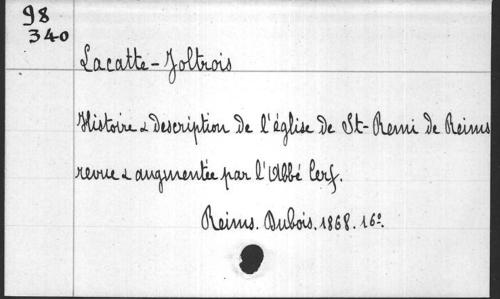 98
340
Lacatte-Joltrois
Histoire & description de l'église de St-Remi de Reims
revue & augmentée par l'Abbé Cerf.
Reims. Dubois. 1868. 16º.